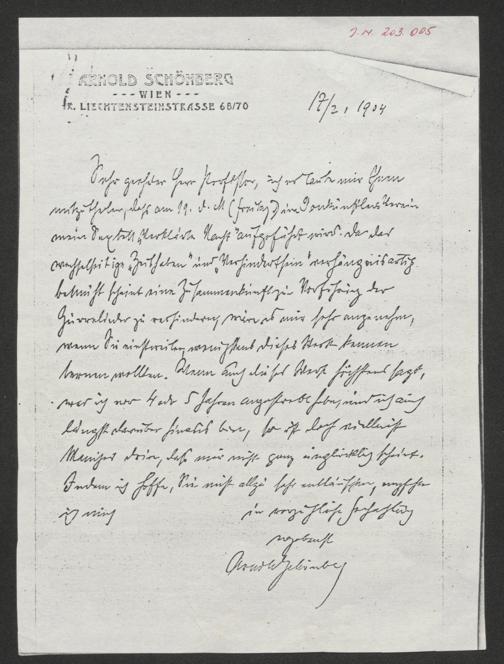 J.N. 203.005
ARNOLD SCHÖNBERG
--- WIEN ---
IX. LIECHTENSTEINSTRASSE 68/70
17/2. 1904
Sehr geehrter Herr Professor, ich erlaube mir Ihnen
mitzutheilen, daß am 19. d. M (Freitag) im Tonkünstlerverein
mein Sextett „Verklärte Nacht" aufgeführt wird. Da das
wechselseitige „Zeithaben" und „Verhindertsein" verhängnisartig
bemüht scheint eine Zusammenkunft zur Vorführung der
Gurrelieder zu verhindern, wäre es mir sehr angenehm,
wenn Sie einstweilen wenigstens dieses Werk kennen
lernen wollten. Wenn auch dieses Werk höchstens sagt,
was ich vor 4 oder 5 Jahren angestrebt habe, und ich auch
längst darüber hinaus bin, so ist doch vielleicht
Manches drin, daß mir nicht ganz unglücklich scheint.
Indem ich hoffe, Sie nicht allzu sehr enttäuschen, empfehle
ich mich
in vorzüglicher Hochachtung
ergebenst
Arnold Schönberg